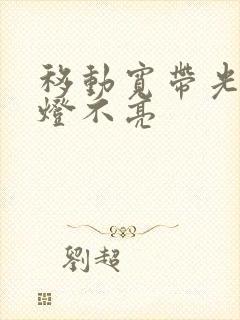 移動寬帶光
燈不亮
劉超